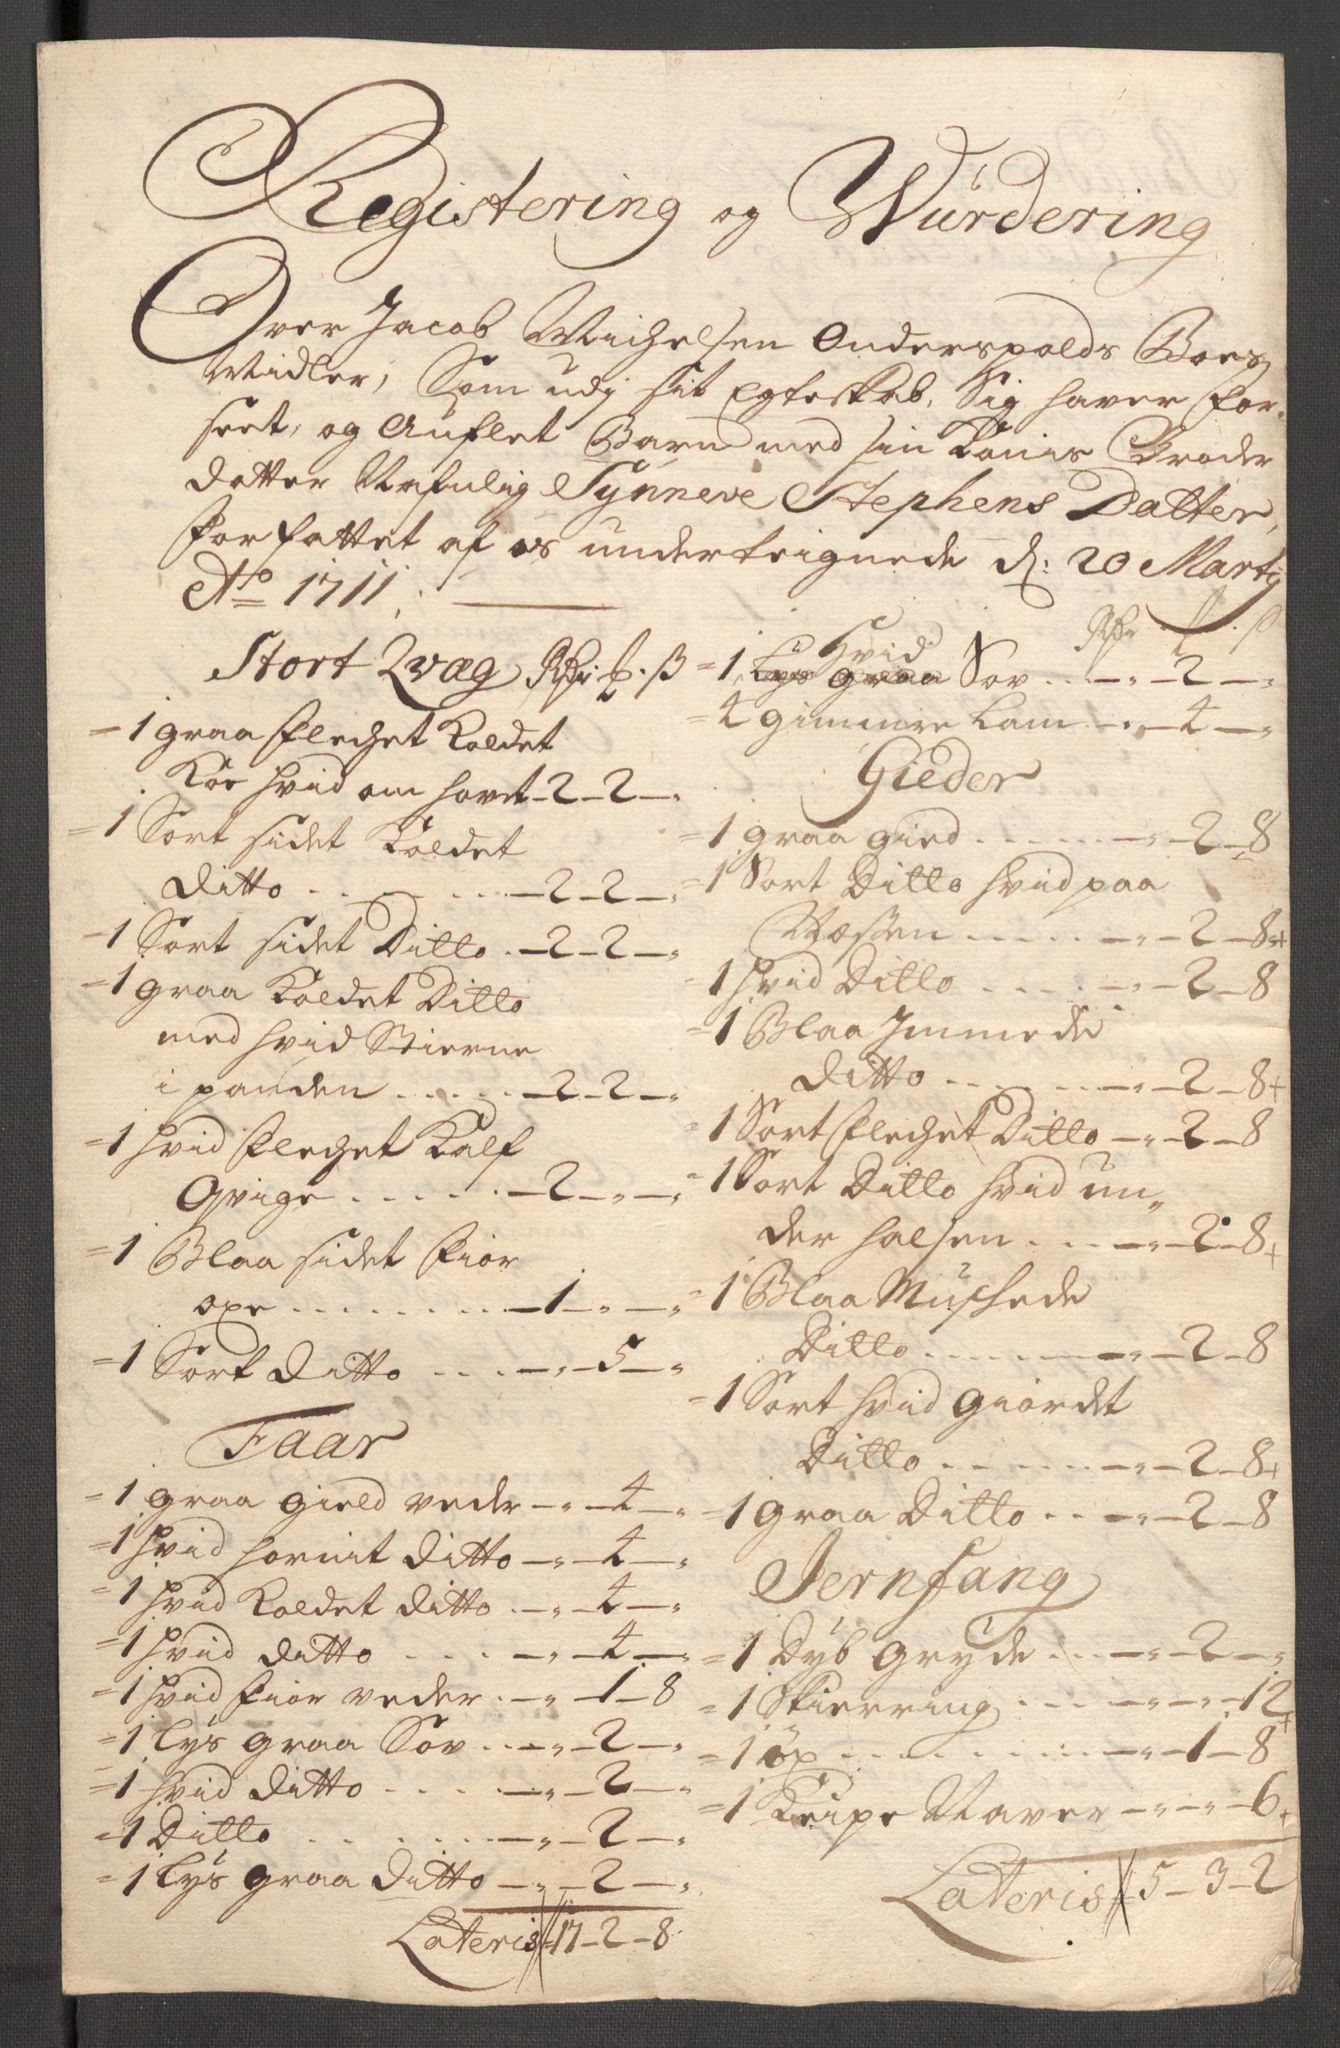 Registering og Würdering
Over Jacob Michelsen Onderspolds Boes
Midler, Som udj sit Egteskab, Sig haver for-
seet, og Auflet Barn med sin Konis Broder
datter Nafnlig Sÿnneve Stephens Datter,
forfattet af os underteignede d: 20 Martij
Ao 1711,
Stort Qvæg Rdr: ₻: ß
= 1 graa flechet Koldet
Koe hvid om hovet - 2 - 2 - "
= 1 Sort sidet Koldet
Ditto . . . . - 2 - 2 - "
= 1 Sort sidet Ditto . - 2 - 2 - "
= 1 graa Koldet Ditto
med hvid Stierne
i panden . . . . - 2 - 2 - "
= 1 hvid flechet Kalf
Qvige . . . . . - 2 - " - "
= 1 Blaa sidet fior
oxe . . . . . . - 1 - " - "
= 1 Sort Ditto . . . - " - 5 - "
Faar
= 1 graa gield veder - " - 4 - "
= 1 hvid hornit Ditto - " - 4 - "
= 1 hvid Koldet Ditto . - " - 4 - "
= 1 hvid Ditto . . . - " - 4 - "
= 1 hvid fior veder . - " - 1 - 8
= 1 lÿs graa Sov . . - " - 2 - "
= 1 hvid Ditto . . . . - " - 2 - "
= 1 Ditto . . . . . . - " - 2 - "
= 1 lÿs graa Ditto - " - 2 - "
Lateris 17 - 2 - 8
Rdr ₻ . ß
hvid
= 1 Lys graa Sov . . - " - 2 - "
= 4 gimmre Lam - " - 4 - "
Gieder
= 1 graa gied . . . . . - " - 2 - 8
= 1 Sort Ditto hvid paa
Næssen . . . . . - " - 2 - 8 +
= 1 hvid Ditto . . . . - " - 2 - 8
= 1 Blaa Jmmede
Ditto . . . . . . - " - 2 - 8 +
= 1 Sort flechet Ditto - " - 2 - 8
= 1 Sort Ditto hvid un„
der halsen . . . - " - 2 - 8 +
= 1 Blaa Mushede
Ditto . . . . . . - " - 2 - 8
= 1 Sort hvid giordet
Ditto . . . . . - " - 2 - 8 +
= 1 graa Ditto . . - " - 2 - 8
Jernfang
= 1 Dÿb grÿde . . . - " - 2 - "
= 1 Skierring . . . - " - " - 12 +
= 1 öx . . . . . . . - " - 1 - 8
= 1 Keipe Naver - " - " - 6 +
Lateris 5 - 3 - 2